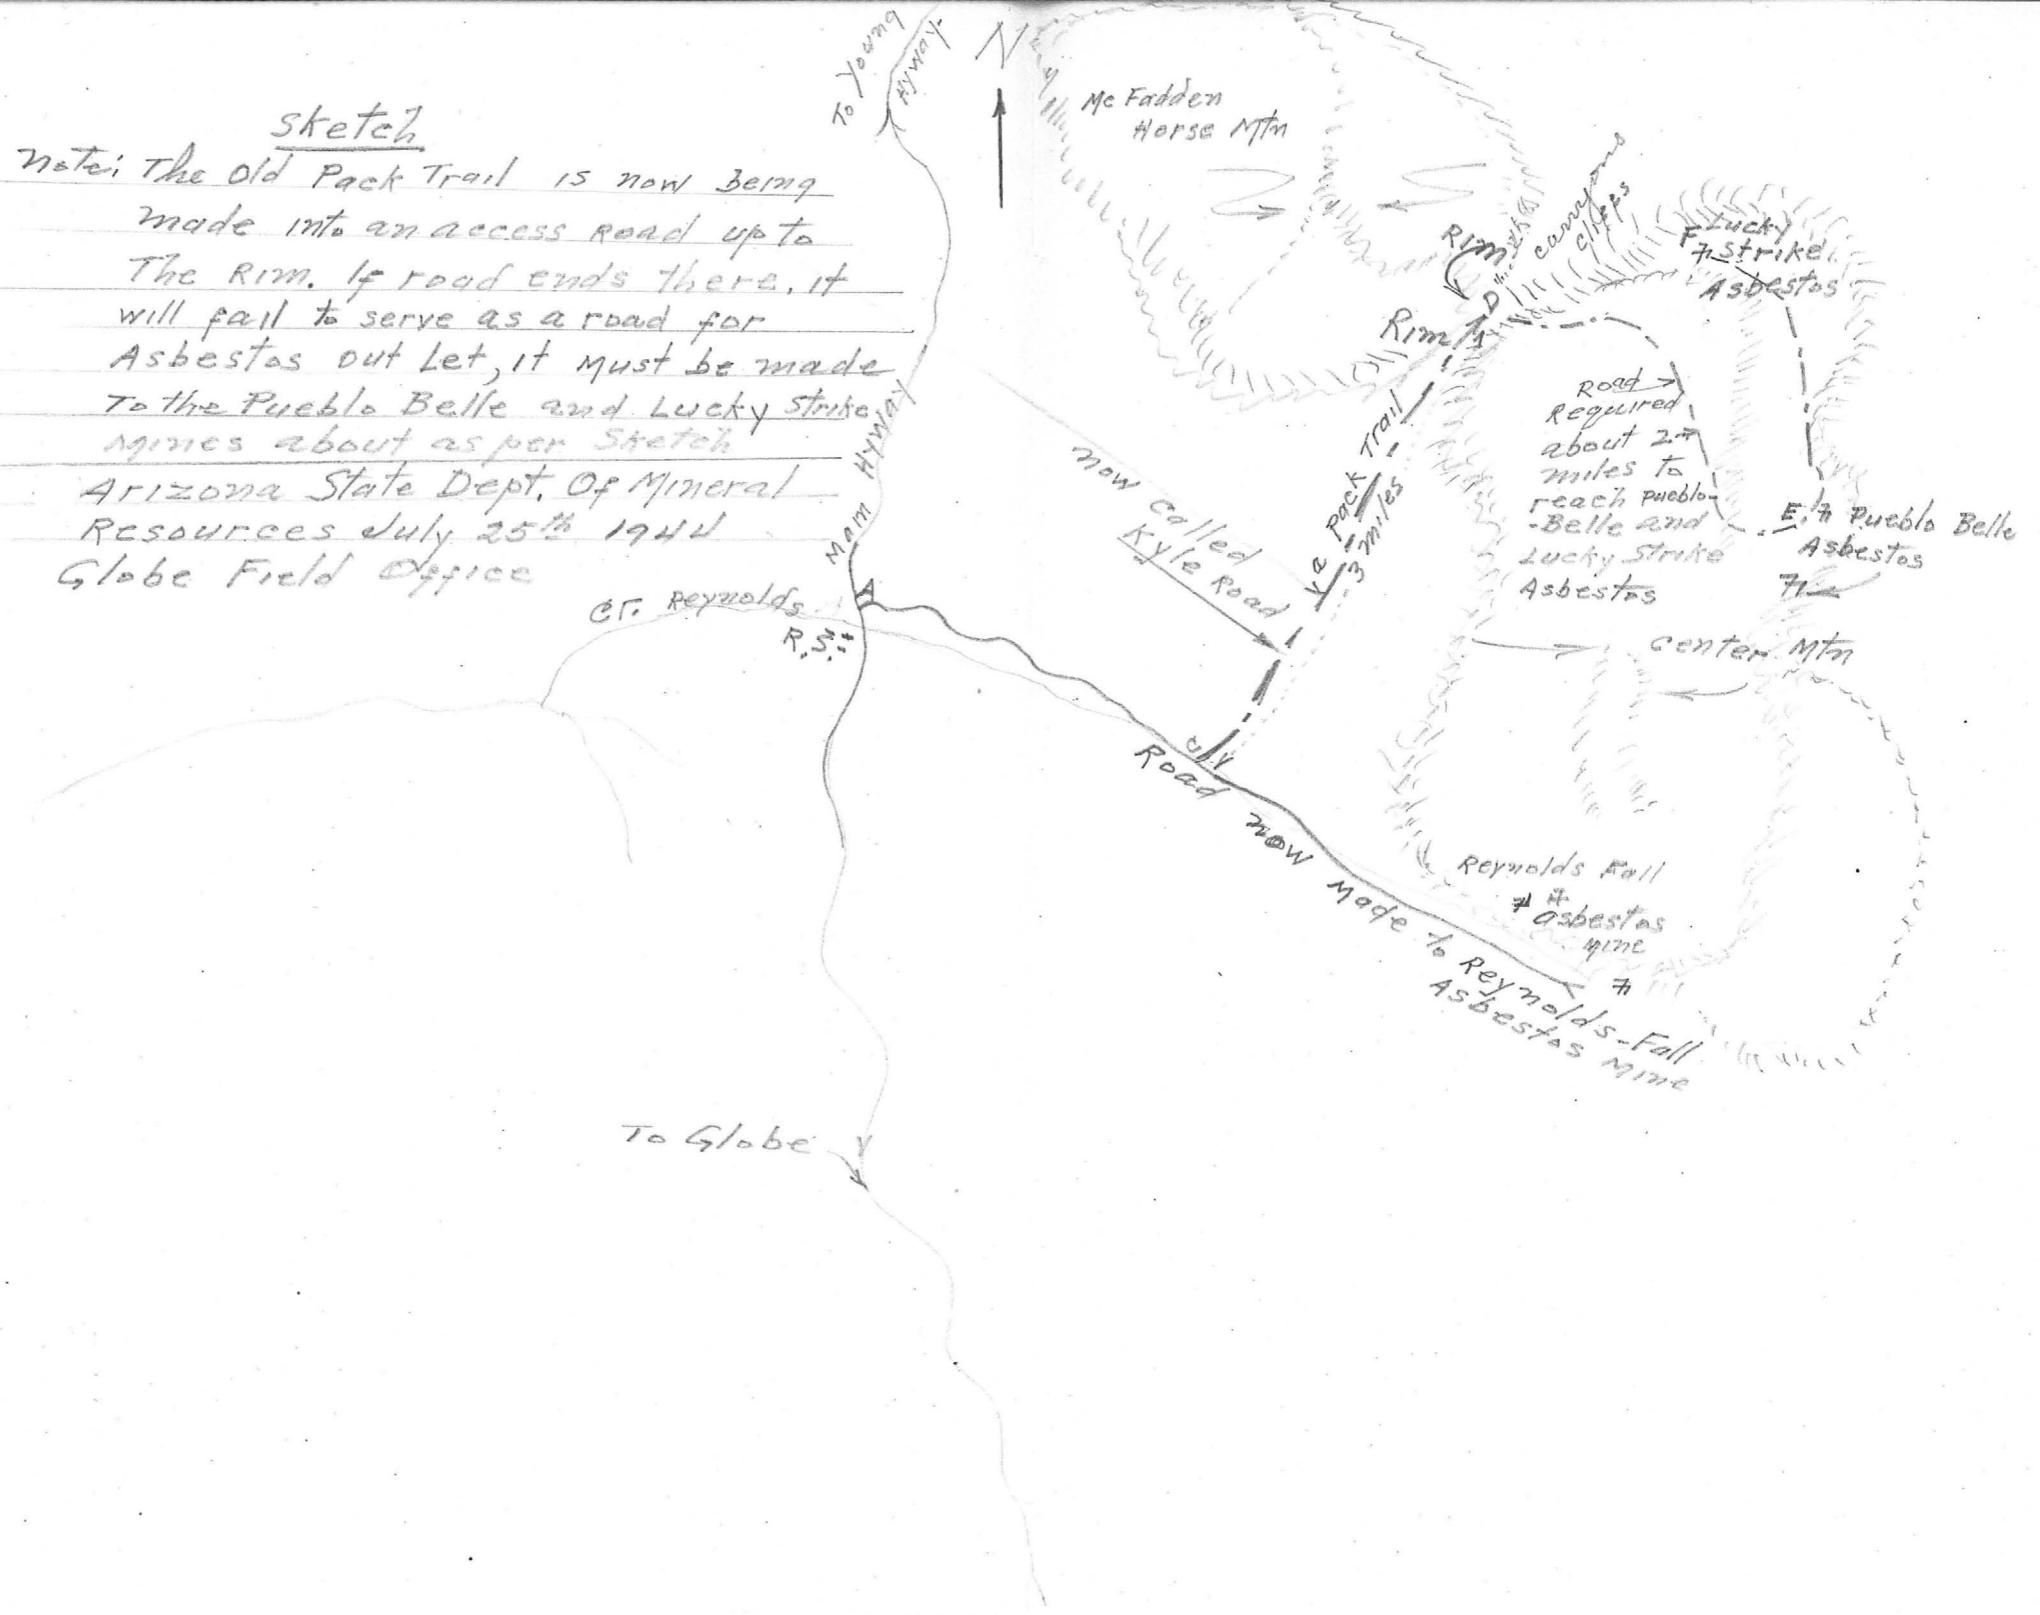 Sketch
Note: The Old Pack Trail is now being
made into an access Road up to
The Rim. If road ends there, it
will fail to serve as a road for
Asbestos out Let, it Must be made
To the Pueblo Belle and Lucky Strike
Mines about as per Sketch
Arizona State Dept. Of Mineral
Resources July 25th 1944
Globe Field Office
To Young
Hyway
N
Mc Fadden
Horse Mtn
Rim
Canyons
Cliffs
Lucky
F Strike
Asbestos
D
Rim
Road
Required
about 2
miles to
reach Pueblo
-Belle and
Lucky Strike
Asbestos
E. Pueblo Belle
Asbestos
Main HyWay
Now Called
Kyle Road
Pack Trail
3 miles
A
Cr. Reynolds
R.S.
Center Mtn
C
Road Now Made to Reynolds-Fall
Asbestos Mine
Reynolds Fall
Asbestos
Mine
To Globe